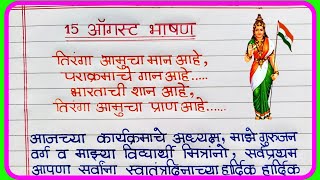 15 ऑगस्ट भाषण
तिरंगा आमुचा मान आहे,
पराक्रमाचे गान आहे.....
भारताची शान आहे,
तिरंगा आमुचा प्राण आहे.....
आजच्या कार्यक्रमाचे अध्यक्ष, माझे गुरुजन
वर्ग व माझ्या विद्यार्थी मित्रांनो, सर्वप्रथम
आपणा सर्वांना स्वातंत्र्यदिनाच्या हार्दिक हार्दिक